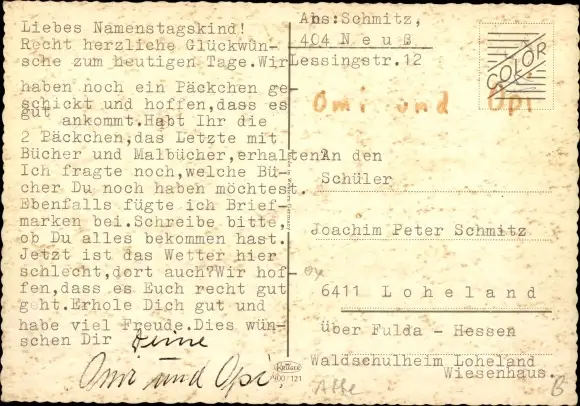 Liebes Namenstagskind!
Recht herzliche Glückwün-
sche zum heutigen Tage.Wir
haben noch ein Päckchen ge-
schickt und hoffen,dass es
gut ankommt.Habt Ihr die
2 Päckchen,das Letzte mit
Bücher und Malbücher,erhalten?
Ich fragte noch,welche Bü-
cher Du noch haben möchtest.
Ebenfalls fügte ich Brief-
marken bei.Schreibe bitte,
ob Du alles bekommen hast.
Jetzt ist das Wetter hier
schlecht,dort auch?Wir hof-
fen,dass es Euch recht gut
geht.Erhole Dich gut und
habe viel Freude.Dies wün-
schen Dir Deine
Omi und Opi.
Abs:Schmitz,
404 Neuß
Lessingstr.12
COLOR
Omi und Opi
An den
Schüler
Joachim Peter Schmitz
6411 Loheland
über Fulda - Hessen
Waldschulheim Loheland
Wiesenhaus.
Krüger
400/121
B